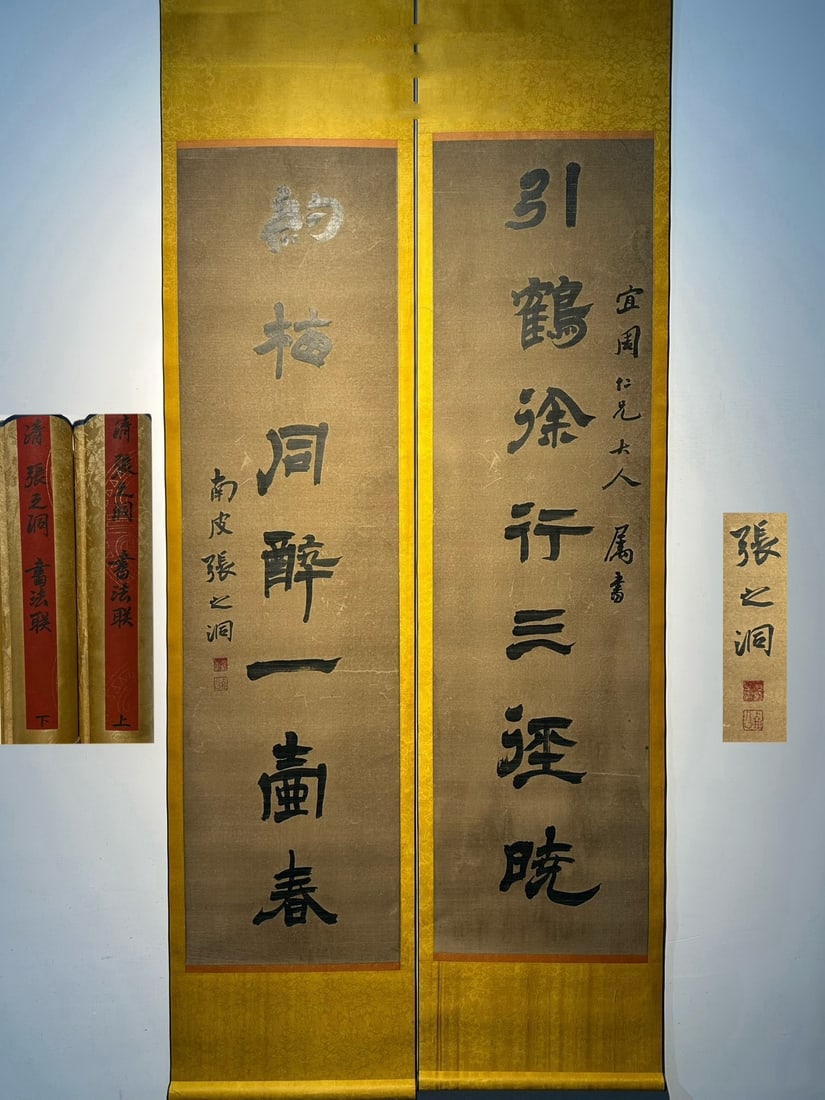 宜周仁兄大人 属書
引鶴徐行三徑暁
約梅同酔一壺春
南皮張之洞
清 張之洞 書法联 上
清 張之洞 書法联 下
張之洞